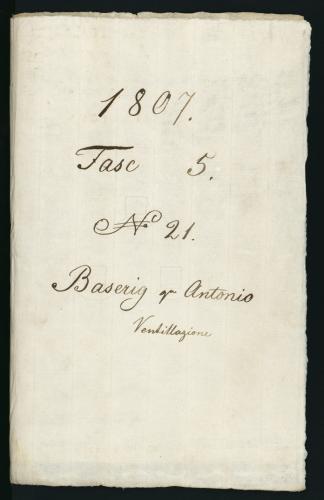 1807.
Fasc 5.
No 21.
Baserig qm Antonio
Ventillazione